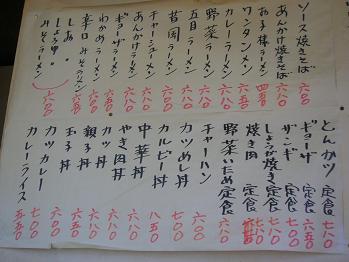 ソース焼きそば 六〇〇
あんかけ焼きそば
お子様ラーメン 四五〇
ワンタンメン 六五〇
カレーラーメン 六八〇
野菜ラーメン 六八〇
五目ラーメン 六八〇
昔風ラーメン
チャーシューメン
あんかけラーメン 六八〇
ギョーザラーメン 六八〇
わかめラーメン
辛口みそラーメン
しょうゆ
しお
みそラーメン 六〇〇
とんかつ定食 七八〇
ギョーザ定食 六五〇
ザンギ定食 七〇〇
しょうが焼き定食 七八〇
焼き肉定食 七八〇
野菜いため定食
チャーハン 六〇〇
カツめし丼 七〇〇
カルビー丼 八五〇
中華丼
やき肉丼
カツ丼
親子丼
玉子丼 六〇〇
カツカレー 七〇〇
カレーライス 五五〇